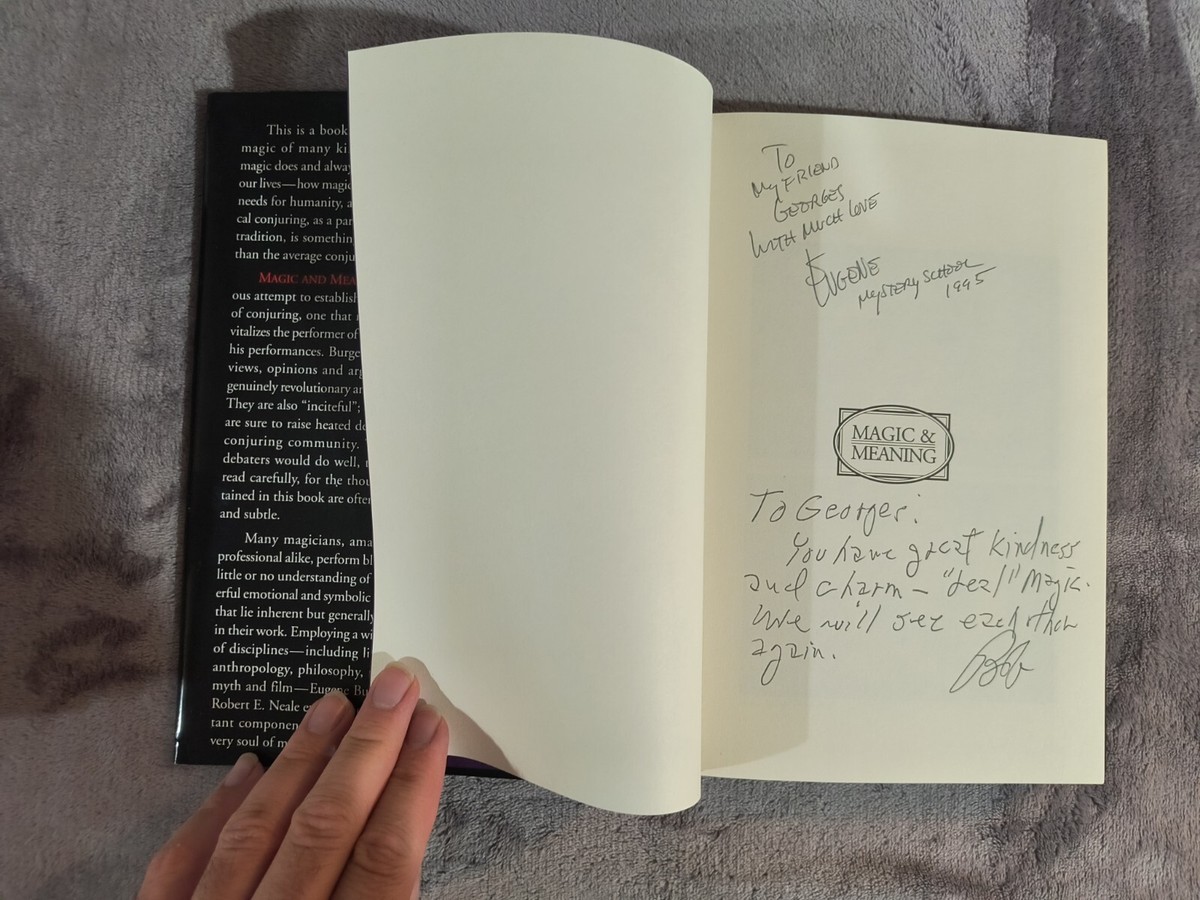 This is a book
magic of many
magic does and
our lives—how magic
needs for humanity,
cal conjuring, as a
tradition, is
than the average
MAGIC AND
ous attempt to
of conjuring, one that
vitalizes the performer of
his performances.
views, opinions and
genuinely revolutionary
They are also “inciteful”;
are sure to raise heated
conjuring community.
debaters would do well,
read carefully, for the
tained in this book are
and subtle.
Many magicians,
professional alike, perform
little or no understanding of
erful emotional and symbolic
that lie inherent but generally
in their work. Employing a
of disciplines—including
anthropology, philosophy,
myth and film—Eugene
Robert E. Neale
tant
very soul of
TO
MY FRIEND
GEORGES
WITH MUCH LOVE
EUGENE
MYSTERY SCHOOL
1995
MAGIC &
MEANING
To Georges:
You have great kindness
and charm — "real" magic.
We will see each other
again.
Bob